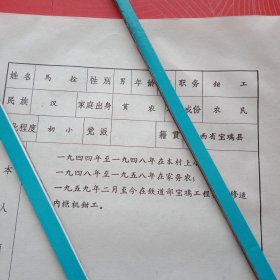 姓名 馬拉 性别 男 年龄 职务 鉗工
民族 汉 家庭出身 貧农 成份 农民
化程度 初小 党派 籍貫 西省宝鸡县
本 一九四四年至一九四八年在本村上
一九四八年至一九五八年在家务农;
人 一九五九年二月至今在鉄道部宝鸡工程 修造
内燃机鉗工。